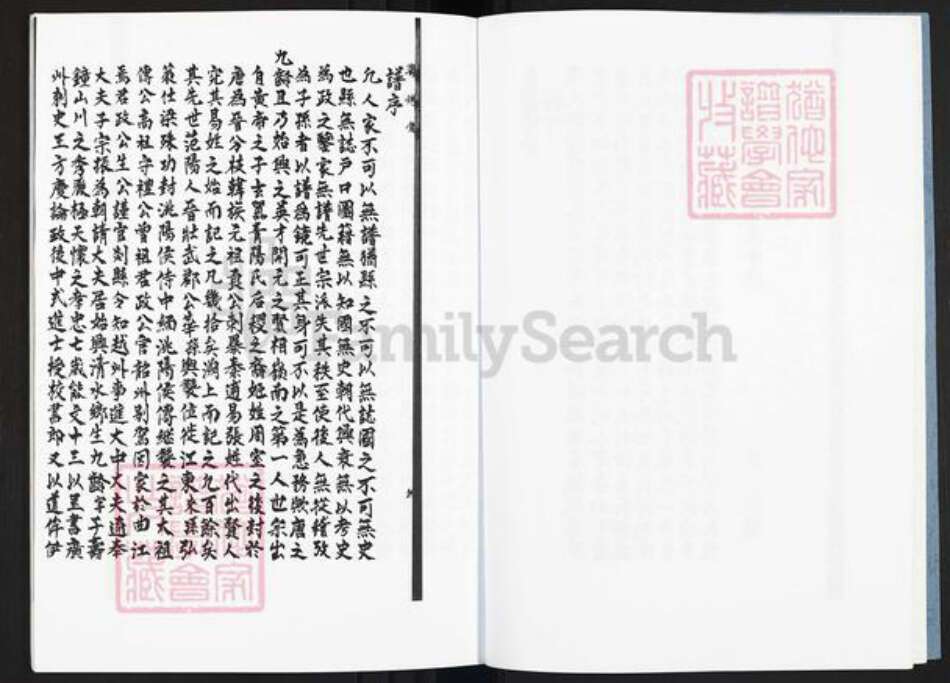 譜序
凡人家不可以無譜猶縣之不可以無誌國之不可無史
也縣無誌戶口圖籍無以知國無史朝代興衰無以考史
為政之鑒家無譜先世宗派失其秩至使後人無從稽攷
為子孫者以譜為鏡可正其身可不以是為急務歟唐之
九齡且乃始興之英才開元之賢相嶺南之第一人世系出
自黃帝之子玄囂青陽氏后稷之裔姓姬周室之後封於
唐為晉分枝韓族元祖貴公刺擧秦適易張姓代出賢人
究其易姓之始而記之凡幾拾矣溯上而記之九百餘矣
其先世范陽人晉壯武郡公華孫輿襲位徙江東來孫弘
策仕梁殊功封洮陽侯侍中緬洮陽侯傳繼襲之其大祖
傳公高祖守禮公曾祖君政公官韶州別駕因家於曲江
焉君政公生公謹官剡縣令知越州事進大中丈夫適奉
大夫子宗振為朝請大夫居始興清水鄉生九齡字子壽
鐘山川之秀麗極天懷之孝忠七歲能文十三以呈書廣
州刺史王方慶論政後中式進士授校書郎又以道侔伊
猶他家
譜學會
收藏
FamilySearch